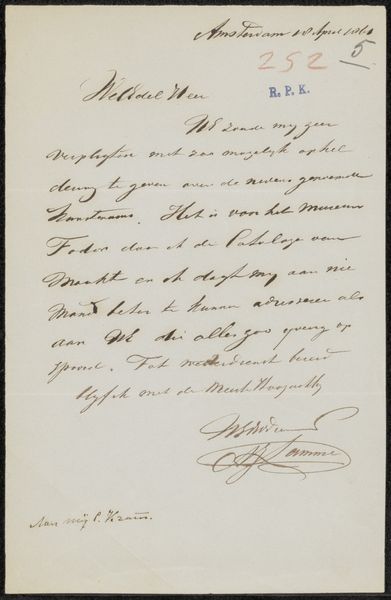 Amsterdam 18 April 1861
252 5
R. P. K.
WelEdel Heer
my zeer
verpligten met zoo mogelijk ophel
dering te geven over de nevens genoemde
Kunstenaars. Het is voor het Museum
Fodor daar ik de Catalogo van
Maakt en ik dagt my aan nie
mand beter te kunnen adresseren als
aan die alles zoo op
spoord. Tot wederdienst bereid
blyf ik met de Meeste Hoogachtg
Lamme
Aan mij C. Kramm.